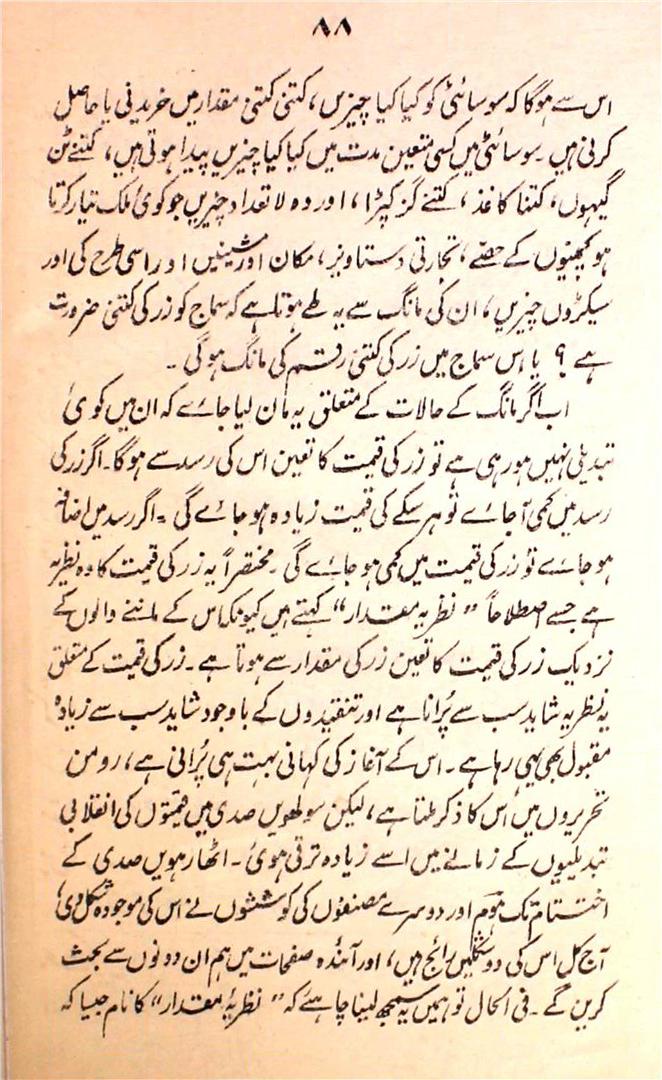 ۸۸
اس سے ہوگا کہ سوسائٹی کو کیا کیا چیزیں، کتنی کتنی مقدار میں خریدنی یا حاصل
کرنی ہیں۔ سوسائٹی میں کسی متعین مدت میں کیا کیا چیزیں پیدا ہوتی ہیں، کتنے ٹن
گیہوں، کتنا کاغذ، کتنے گز کپڑا، اور وہ لاتعداد چیزیں جو کوئی ملک تیار کرتا
ہو کمپنیوں کے حصّے، تجارتی دستاویز، مکان اور مشینیں اور اسی طرح کی اور
سیکڑوں چیزیں، ان کی مانگ سے یہ طے ہوتا ہے کہ سماج کو زر کی کتنی ضرورت
ہے؟ یا اس سماج میں زر کی کتنی رقم کی مانگ ہوگی۔
اب اگر مانگ کے حالات کے متعلق یہ مان لیا جائے کہ ان میں کوئی
تبدیلی نہیں ہو رہی ہے تو زر کی قیمت کا تعین اس کی رسد سے ہوگا۔ اگر زر کی
رسد میں کمی آ جائے تو ہر سکے کی قیمت زیادہ ہو جائے گی۔ اگر رسد میں اضافہ
ہو جائے تو زر کی قیمت میں کمی ہو جائے گی۔ مختصراً یہ زر کی قیمت کا وہ نظریہ
ہے جسے اصطلاحاً ”نظریہ مقدار“ کہتے ہیں کیونکہ اس کے ماننے والوں کے
نزدیک زر کی قیمت کا تعین زر کی مقدار سے ہوتا ہے۔ زر کی قیمت کے متعلق
یہ نظریہ شاید سب سے پُرانا ہے اور تنقیدوں کے باوجود شاید سب سے زیادہ
مقبول بھی یہی رہا ہے۔ اس کے آغاز کی کہانی بہت ہی پُرانی ہے، رومن
تحریروں میں اس کا ذکر ملتا ہے، لیکن سولھویں صدی میں قیمتوں کی انقلابی
تبدیلیوں کے زمانے میں اسے زیادہ ترقی ہوئی۔ اٹھارہویں صدی کے
اختتام تک ہوم اور دوسرے مصنفوں کی کوششوں نے اس کی موجودہ شکل دی،
آج کل اس کی دو شکلیں رائج ہیں، اور آئندہ صفحات میں ہم ان دونوں سے بحث
کریں گے۔ فی الحال تو ہمیں یہ سمجھ لینا چاہئے کہ ”نظریۂ مقدار“ کا نام جیسا کہ